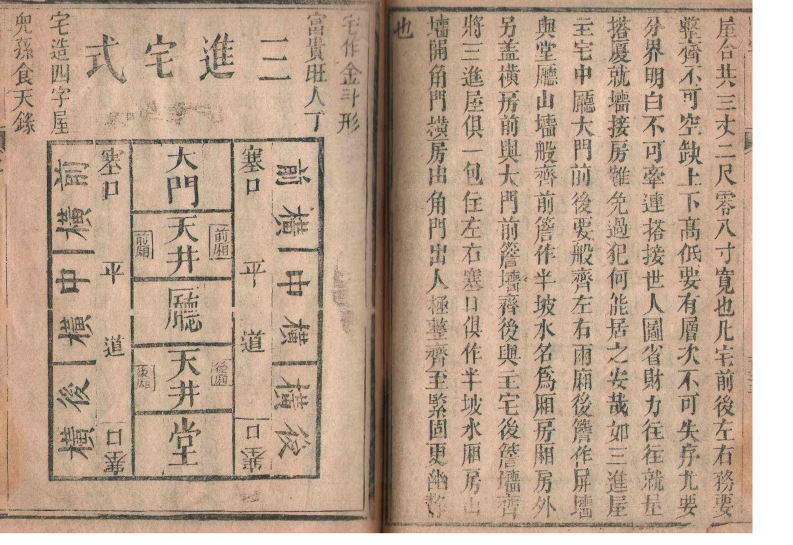 屋合共三丈二尺零八寸寬也凡宅前後左右務要
整齊不可空缺上下高低要有層次不可失序尤要
分界明白不可牽連搭接世人圖省財力往往就屋
搭厦就墻接房難免過犯何能居之安哉如三進屋
主宅中廳大門前後要般齊左右兩廂後簷作屏墻
與堂廳山墻般齊前簷作半坡水名爲廂房廂房外
另盖横房前與大門前簷墻齊後與主宅後簷墻齊
將三進屋俱一包在左右塞口俱作半坡水廂房山
墻開角門横房出角門出人極整齊至緊固更幽靜
也
宅作金斗形
富貴旺人丁
三進宅式
宅造四字屋
兒孫食天祿
前横
中横
後横
塞口
平道
口塞
大門
天井
前廂
前廂
廳
天井
後廂
後廂
堂
塞口
平道
口塞
前横
中横
後横